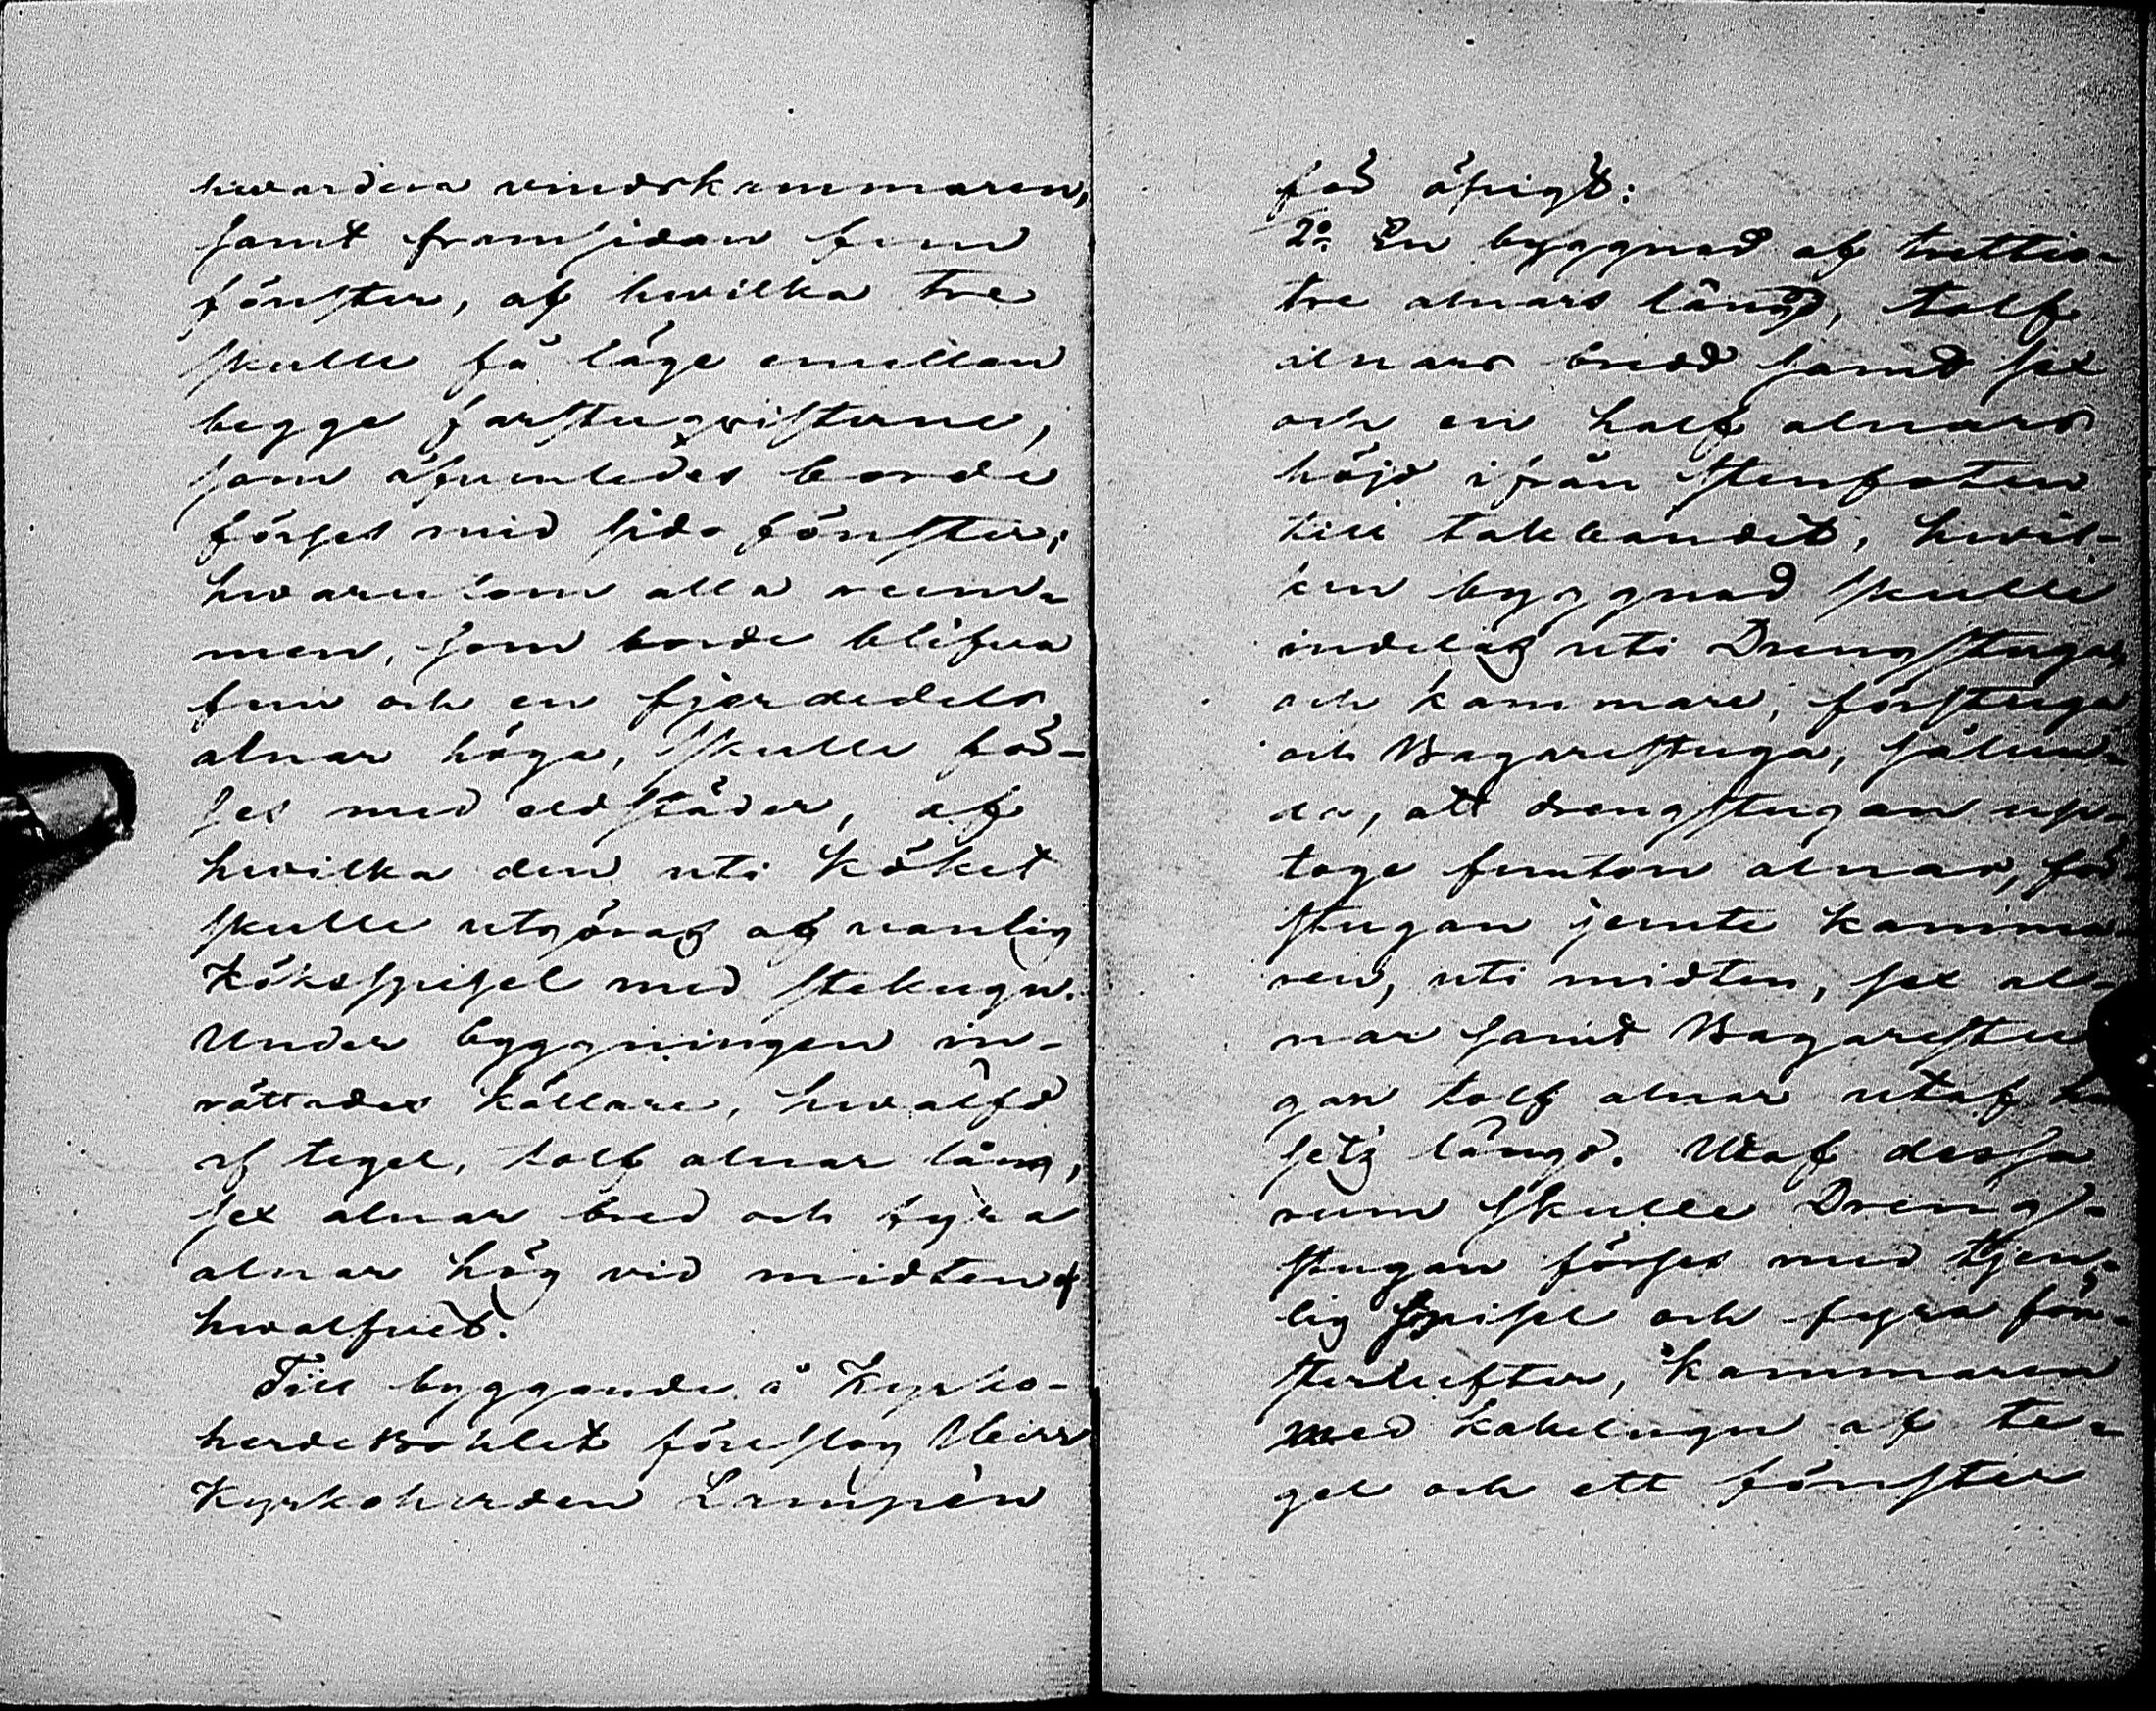 hvardera vindskammaren,
samt framsidan fem
fönster, af hvilka tre
skulle få läge emellan
begge farstuqvisterne,
som äfvenledes borde
förses med sido fönster;
hvarutom alla rum-
men, som borde blifva
fem och en fjerdedels
alnar höga, skulle för-
ses med eldstäder, af
hvilka den uti köket
skulle utgöras af vanlig
Köksspisel med stekugn.
Under byggningen in-
rättades källare, hvälfd
af tegel, tolf alnar lång,
sex alnar bred och fyra
alnar hög vid midten af
hvalfvet.
Till byggande å Kyrko-
herdeBohlet föreslog Herr
Kyrkoherden Lampén
för öfrigt:
2o. En byggnad af trettio-
tre alnars längd, tolf
alnars bredd samt sex
och en half alnars
höjd ifrån stenfoten
till takbandet, hvil-
ken byggnad skulle
indelas uti Drengstuga,
och kammare, förstuga
och Bagarestuga, sålun-
da, att drengstugan up-
toge femton alnar, för
stugan jemte kamma-
ren, uti midten, sex al-
nar samt Bagarestu
gan tolf alnar utaf hu
sets längd. Utaf dessa
rum skulle Dreng-
stugan förses med tjen-
lig spisel och fyra fön-
sterlufter, kammaren
med kakelugn af te-
gel och ett fönster